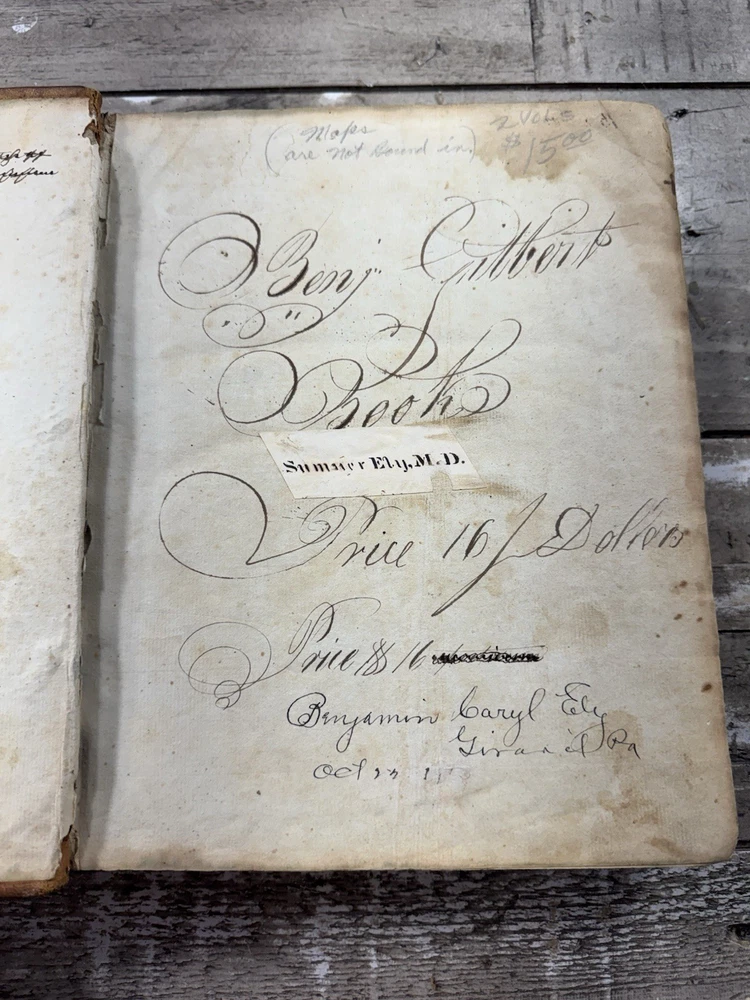 Maps
(are Not bound in)
2 Vols
$15.00
Benj Gilbert
Book
Sumner Ely, M.D.
Price 16 Dollers
Price $ 16
Benjamin Caryl Ely
Girard Pa
Oct